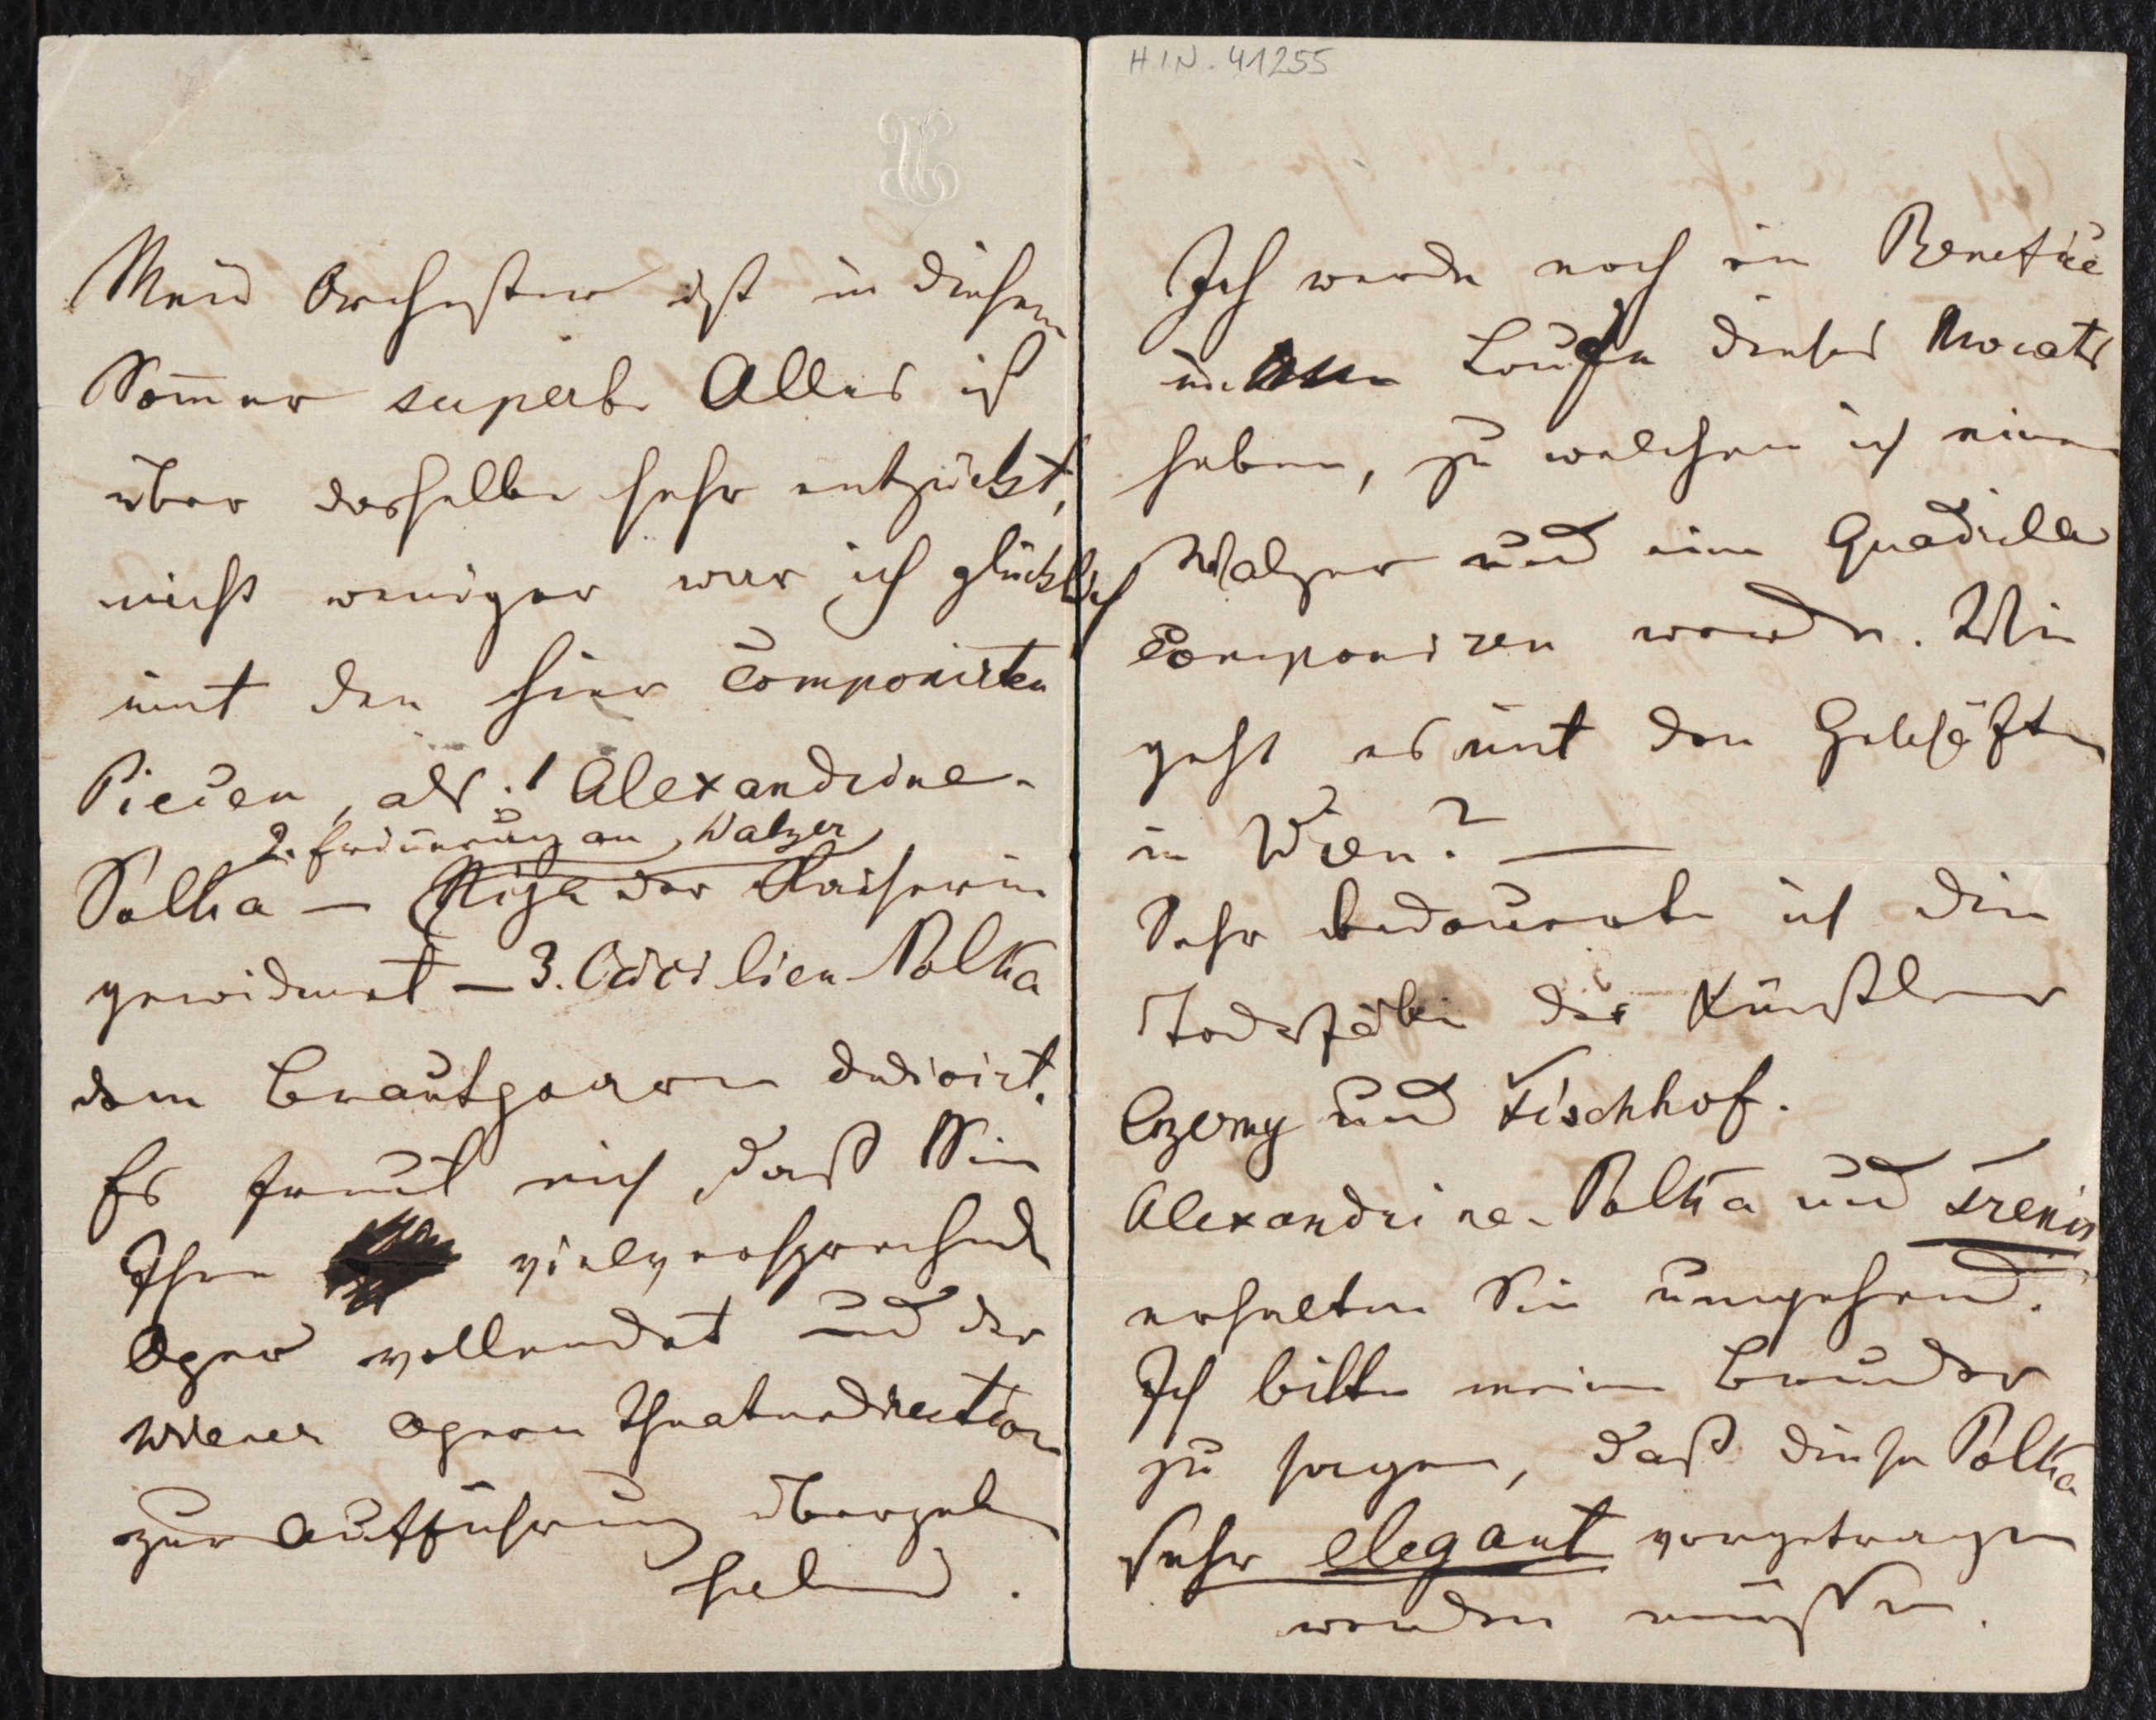 H.I.N. 41255
Mein Orchester ist in diesem
Som̅er superb. Alles ist
über dasselbe sehr entzückt,
nicht weniger war ich glücklich
mit den hier componirten
Piecen, als: 1 Alexandrine-
2. Erin̅erung an Walzer
Polka – Riga der Kaiserin
gewidmet – 3. Cäcilien-Polka
dem Brautpaare dedicirt.
Es freut mich, daß Sie
Ihre vielversprechende
Oper vollendet und der
Wiener Opern Theaterdirection
zur Aufführung übergeben
haben.
Ich werde noch ein Benefice
im Laufe dieses Monats
haben, zu welchem ich einen
Walzer und eine Quadrille
componiren werde. Wie
geht es mit den Geschäften
in Wien? —
Sehr bedauerte ich die
Todesfälle der Künstler
Czerny und Fischhof.
Alexandrine-Polka und
erhalten Sie umgehend.
Ich bitte meinem Bruder
zu sagen, daß diese Polka
sehr elegant vorgetragen
werden müsse.